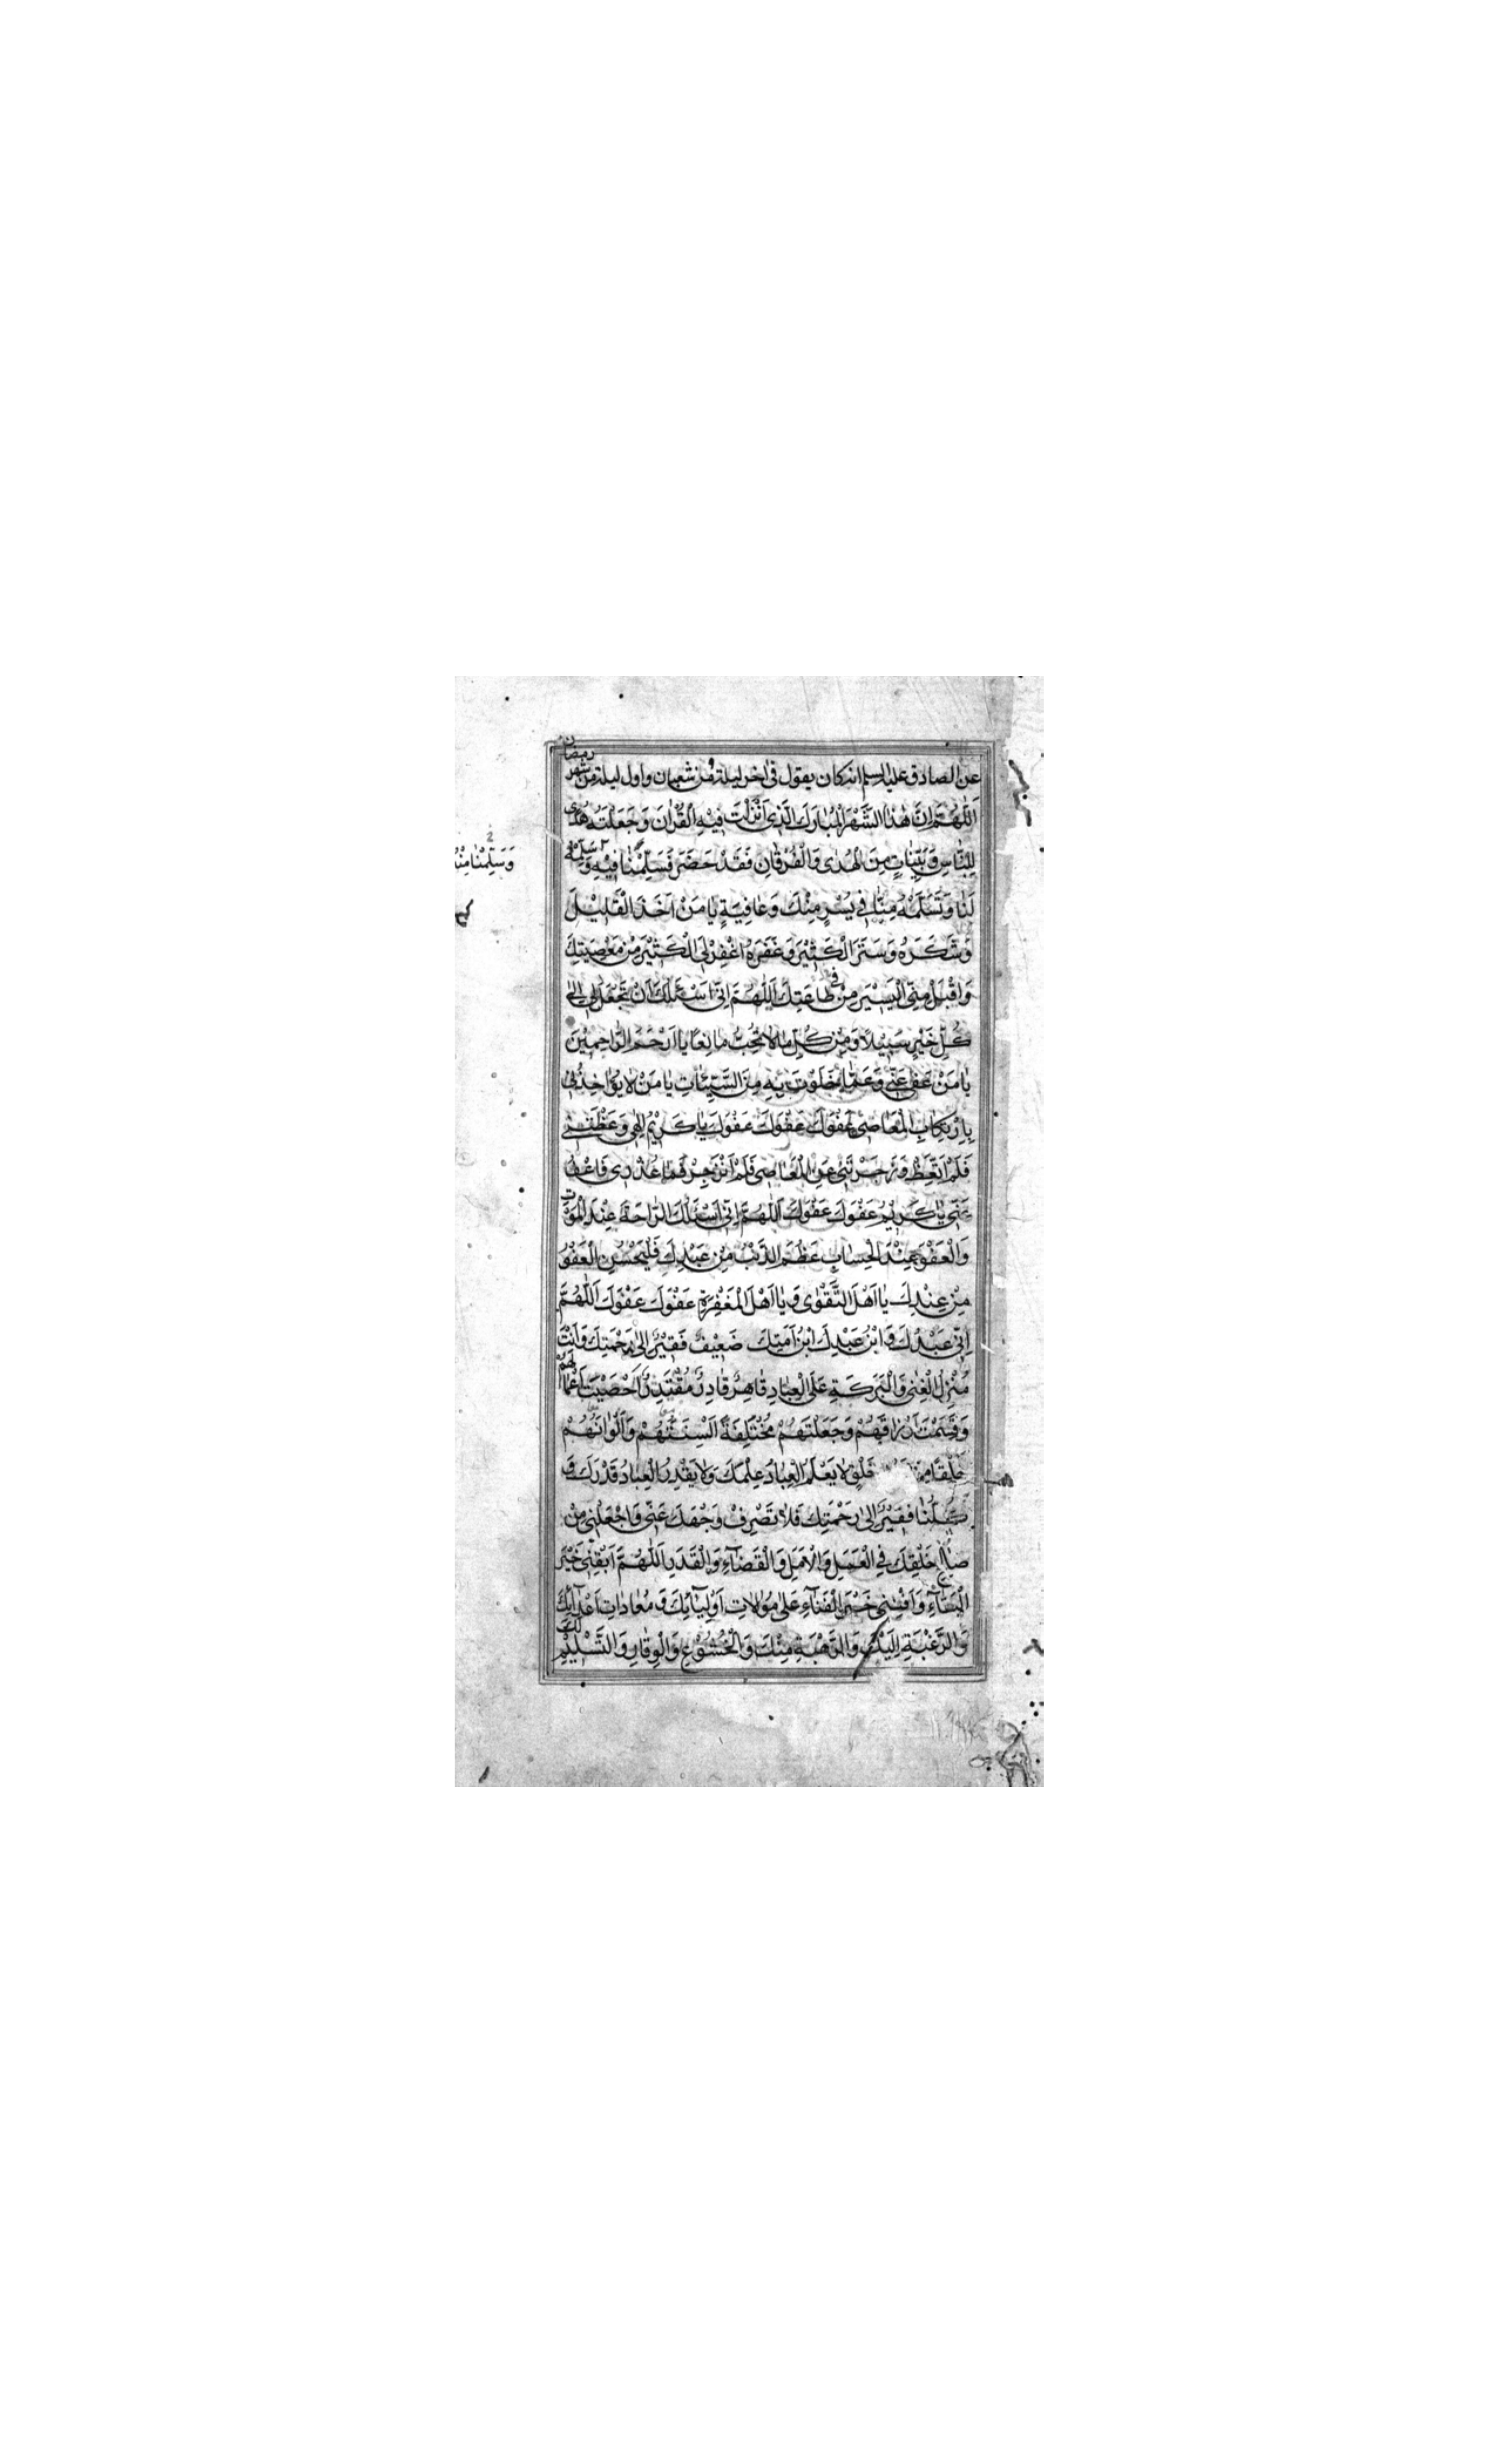 عن الصادق عليه السلم انه كان يقول فى اخر ليلة من شعبان واول ليلة من شهر رمضان
اَللّٰهُمَّ اِنَّ هٰذَا الشَّهْرَ الْمُبٰارَكَ الَّذى اَنْزَلْتَ فيٖهِ الْقُرْاٰنَ وَجَعَلْتَهُ هُدًى
لِلنّٰاسِ وَبَيِّنٰاتٍ مِنَ الْهُدٰى وَالْفُرْقٰانِ فَقَدْ حَضَرَ فَسَلِّمْنٰا فيٖهِ وَسَلِّمْهُ
وَسَلِّمْنٰا مِنْهُ
لَنٰا وَتَسَلَّمْهُ مِنّٰا فى يُسْرٍ مِنْكَ وَعٰافِيَةٍ يٰا مَنْ اَخَذَ الْقَليٖلَ
وَشَكَرَهُ وَسَتَرَ الْكَثيٖرَ وَغَفَرَهُ اغْفِرْ لىَ الْكَثيٖرَ مِنْ مَعْصِيَتِكَ
وَاقْبَلْ مِنِّى الْيَسيٖرَ مِنْ فى طٰاعَتِكَ اَللّٰهُمَّ اِنّى اَسْئَلُكَ اَنْ تَجْعَلَ لى اِلىٰ
كُلِّ خَيْرٍ سَبيٖلًا وَمِنْ كُلِّ مٰا لٰا تُحِبُّ مٰانِعًا يٰا اَرْحَمَ الرّٰاحِميٖنَ
يٰا مَنْ عَفٰى عَنّى وَعَمّٰا خَلَوْتُ بِهٖ مِنَ السَّيِّئٰاتِ يٰا مَنْ لٰا يُؤٰاخِذُنى
بِارْتِكٰابِ الْمَعٰاصى عَفْوَكَ عَفْوَكَ عَفْوَكَ يٰا كَريٖمُ اِلٰهى وَعَظْتَنى
فَلَمْ اَتَّعِظْ وَزَجَرْتَنى عَنِ الْمَعٰاصى فَلَمْ اَنْزَجِرْ فَمٰا عُذْرى فَاعْفُ
عَنّى يٰا كَريٖمُ عَفْوَكَ عَفْوَكَ اَللّٰهُمَّ اِنّى اَسْئَلُكَ الرّٰاحَةَ عِنْدَ الْمَوْتِ
وَالْعَفْوَ عِنْدَ الْحِسٰابِ عَظُمَ الذَّنْبُ مِنْ عَبْدِكَ فَلْيَحْسُنِ الْعَفْوُ
مِنْ عِنْدِكَ يٰا اَهْلَ التَّقْوٰى وَيٰا اَهْلَ الْمَغْفِرَةِ عَفْوَكَ عَفْوَكَ اَللّٰهُمَّ
اِنّى عَبْدُكَ وَابْنُ عَبْدِكَ ابْنُ اَمَتِكَ ضَعيٖفٌ فَقيٖرٌ اِلىٰ رَحْمَتِكَ وَاَنْتَ
مُنْزِلُ الْغِنىٰ وَالْبَرَكَةِ عَلَى الْعِبٰادِ قٰاهِرٌ قٰادِرٌ مُقْتَدِرٌ اَحْصَيْتَ اَعْمٰالَهُمْ
وَقَسَمْتَ اَرْزٰاقَهُمْ وَجَعَلْتَهُمْ مُخْتَلِفَةً اَلْسِنَتُهُمْ وَاَلْوٰانُهُمْ
خَلْقًا مِنْ خَلْقٍ لٰا يَعْلَمُ الْعِبٰادُ عِلْمَكَ وَلٰا يَقْدِرُ الْعِبٰادُ قَدْرَكَ وَ
كُلُّنٰا فَقيٖرٌ اِلىٰ رَحْمَتِكَ فَلٰا تَصْرِفْ وَجْهَكَ عَنّى وَاجْعَلْنى مِنْ
صٰالِحِ خَلْقِكَ فِى الْعَمَلِ وَالْاَمَلِ وَالْقَضٰآءِ وَالْقَدَرِ اَللّٰهُمَّ اَبْقِنى خَيْرَ
الْبَقٰآءِ وَاَفْنِنى خَيْرَ الْفَنٰآءِ عَلىٰ مُوٰالٰاتِ اَوْلِيٰآئِكَ وَمُعٰادٰاتِ اَعْدٰآئِكَ
وَالرَّغْبَةِ اِلَيْكَ وَالرَّهْبَةِ مِنْكَ وَالْخُشُوْعِ وَالْوِقٰارِ وَالتَّسْليٖمِ لَكَ